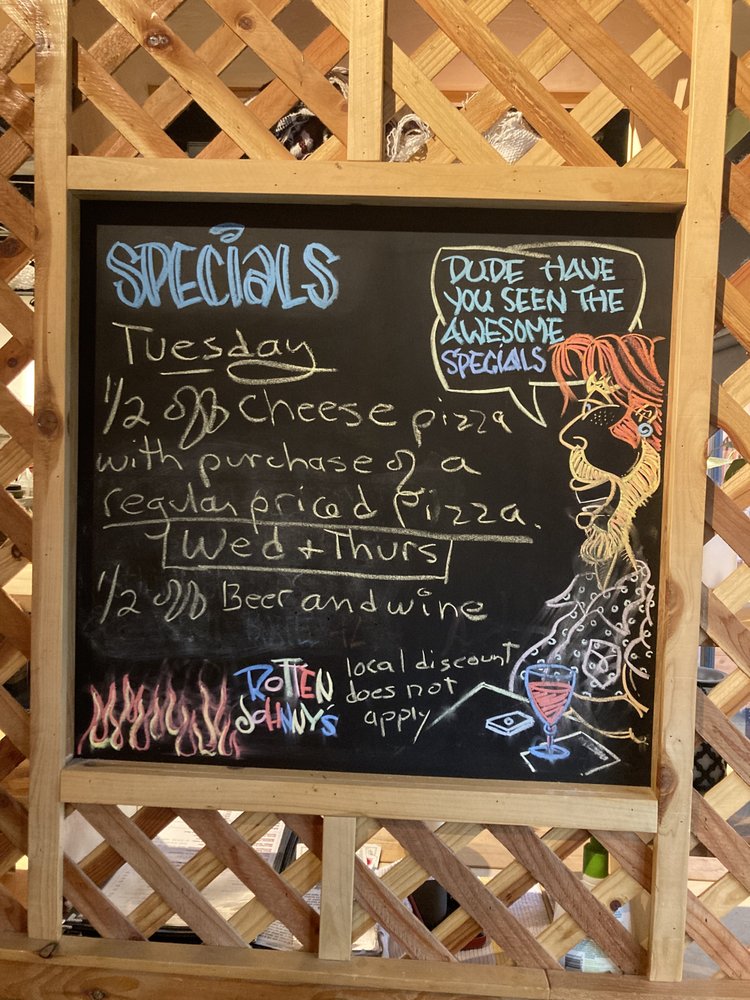 SPECiALS
Tuesday
1/2 off cheese pizza
with purchase of a
regular priced pizza.
Wed + Thurs
1/2 off Beer and wine
ROTTEN
JOHNNY'S
local discount
does not
apply
DUDE HAVE
YOU SEEN THE
AWESOME
SPECIALS